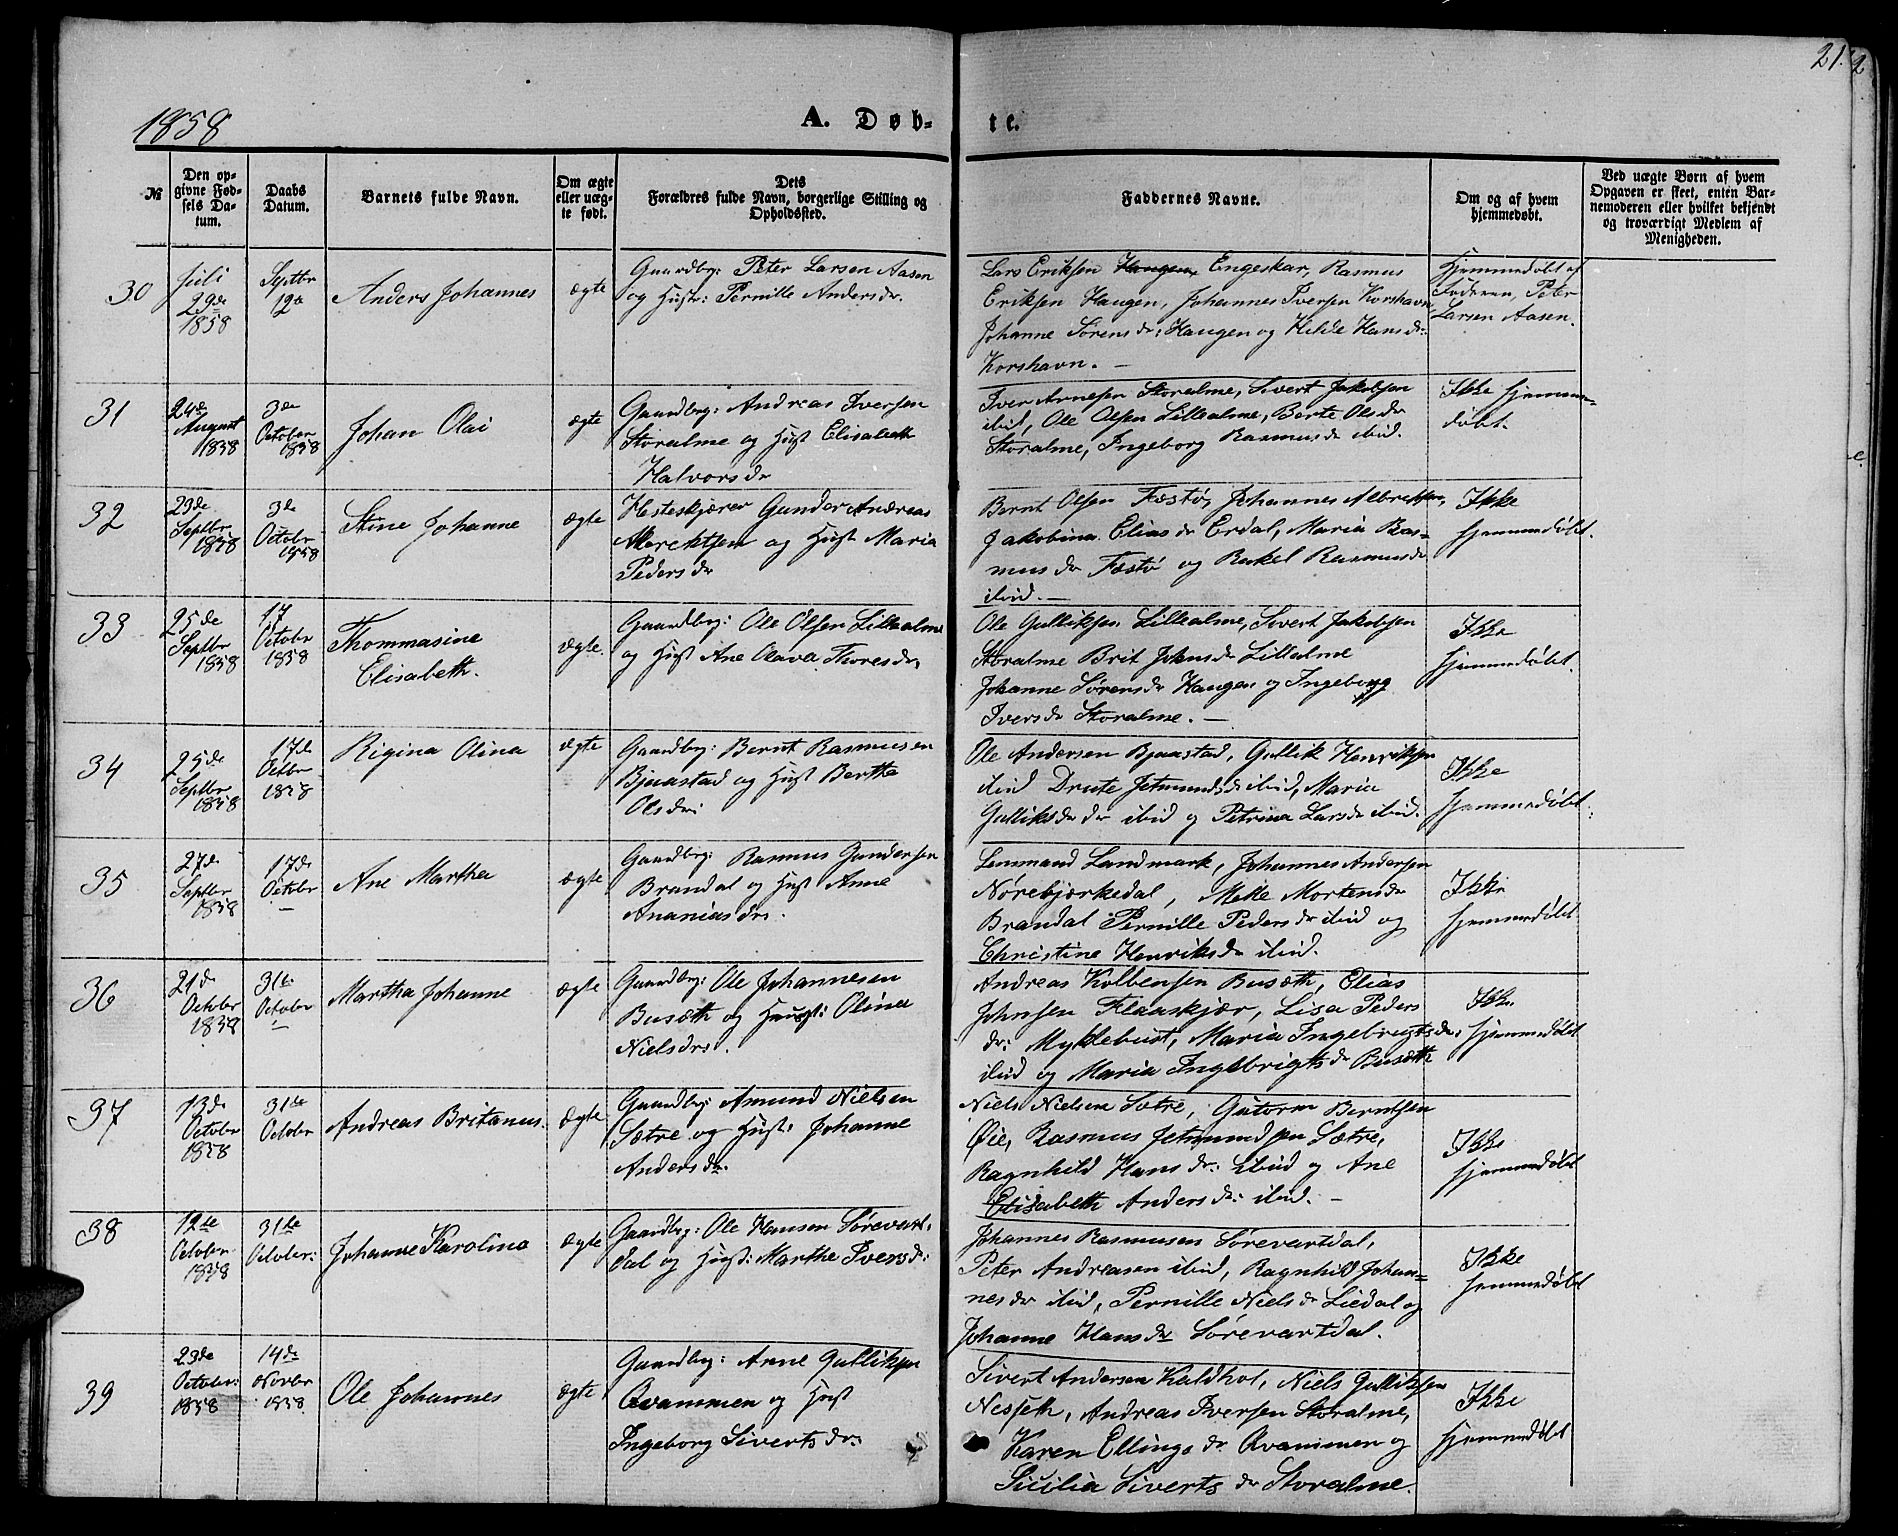 21.
2
1858
A. Døb-
te.
№
Den op-
givne Fød-
sels Da-
tum.
Daabs
Datum.
Barnets fulde Navn.
Om ægte
eller uæg-
te født.
Dets
Forældres fulde Navn, borgerlige Stilling og
Opholdssted.
Faddernes Navne.
Om og af hvem
hjemmedøbt.
Ved uægte Børn af hvem
Opgaven er skeet, enten Bar-
nemoderen eller hvilket bekjendt
og troværdigt Medlem af
Menigheden.
30
Juli
29de
1858
Septbr
12te
Anders Johannes
ægte
Gaardbr: Peter Larsen Aasen
og Hustr: Pernille Andersdr.
Lars Eriksen Haugen, Engeskar, Rasmus
Eriksen Haugen, Johannes Iversen Korshavn,
Johanne Sørensdr: Haugen og Hilde Hansdr:
Korshavn. —
Hjemmedøbt af
Faderen, Peter
Larsen Aasen.
31
24de
August
1858
3de
October
1858
Johan Olai
ægte
Gaardbr: Andreas Iversen
Storalme og Hust Elisabeth
Halvorsdr
Iver Arnesen Storalme, Sivert Jakobsen
ibid, Ole Olsen Lillealme, Berte Olsdr
Storalme, Ingeborg Rasmusdr ibid.
Ikke hjemme-
døbt.
32
23de
Septbr
1858
3de
Octobr
1858
Stine Johanne
ægte
Hesteskjærer Gunder Andreas
Merchtsen og Hust Maria
Pedersdr
Bernt Olsen Fæstø, Johannes Albretsen,
Jakobina Eliasdr Erdal, Maria Ras-
musdr Fæstø og Rakel Rasmusdr
ibid. —
Ikke
hjemmedøbt.
33
25de
Septbr
1858
17
October
1858
Thommasine
Elisabeth.
ægte.
Gaardbr: Ole Olsen Lillealme
og Hust Ane Olava Thoresdr.
Ole Gulliksen Lillealme, Sivert Jakobsen
Storalme Brit Johnsdr Lillalme
Johanne Sørensdr Haugen og Ingeborg
Iversdr Storalme. —
Ikke
hjemmedøbt.
34
25de
Septbr
1858
17de
Octbr
1858
Rigina Olina
ægte
Gaardbr: Bernt Rasmusen
Bjaastad og Hust Berthe
Olsdr:
Ole Andersen Bjaastad, Gullik Henriksen
ibid Drute Jetmundsdr ibid, Maria
Gulliksdr dr ibid og Petrina Larsdr ibid.
Ikke
hjemmedøbt.
35
27de
Septbr
1858
17de
October
—
Ane Martha
ægte
Gaardbr: Rasmus Gundersen
Brandal og Hust Anne
Ananiasdr.
Lensmand Landmark, Johannes Andersen
Nørebjørkedal, Mette Mortensdr
Brandal Pernille Pedersdr ibid og
Christine Henriksdr ibid.
Ikke
hjemmedøbt
36
21de
October
1858
31te
October
—
Martha Johanne
ægte
Gaardbr: Ole Johannesen
Busæth og Hust: Olina
Nielsdr.
Andreas Kolbensen Busæth, Elias
Johnsen Flaaskjær, Lisa Peders
dr: Myklebust, Maria Ingebrigtsdr:
ibid og Maria Ingebrigtsdr Busæth
Ikke
hjemmedøbt
37
13de
October
1858
31te
October
Andreas Britanus.
ægte
Gaardbr: Amund Nielsen
Sætre og Hust: Johanne
Andersdr.
Niels Nielsen Sætre, Gutorm Berntsen
Øie, Rasmus Jetmundsen Sætre,
Ragnhild Hansdr: ibid og Ane
Elisabeth Andersdr: ibid. —
Ikke
hjemmedøbt
38
12te
October
1858
31te
October:
Johanne Karolina
ægte
Gaardbr: Ole Hansen Sørevart-
dal og Hust: Marthe Iversdr:
Johannes Rasmusen Sørevartdal,
Peter Andreasen ibid, Ragnhild Johan-
nesdr ibid, Pernille Nielsdr Liedal og
Johanne Hansdr Sørevartdal.
Ikke
hjemmedøbt
39
23de
October:
1858
14de
Novbr
1858
Ole Johannes
ægte
Gaardbr: Arne Gulliksen
Qvammen og Hust
Ingeborg Sivertsdr:
Sivert Andersen Kaldhol, Niels Gulliksen
Nesseth, Andreas Iversen Storalme,
Karen Ellingsdr Qvammen og
Sicilia Sivertsdr Storalme.
Ikke
hjemmedøbt